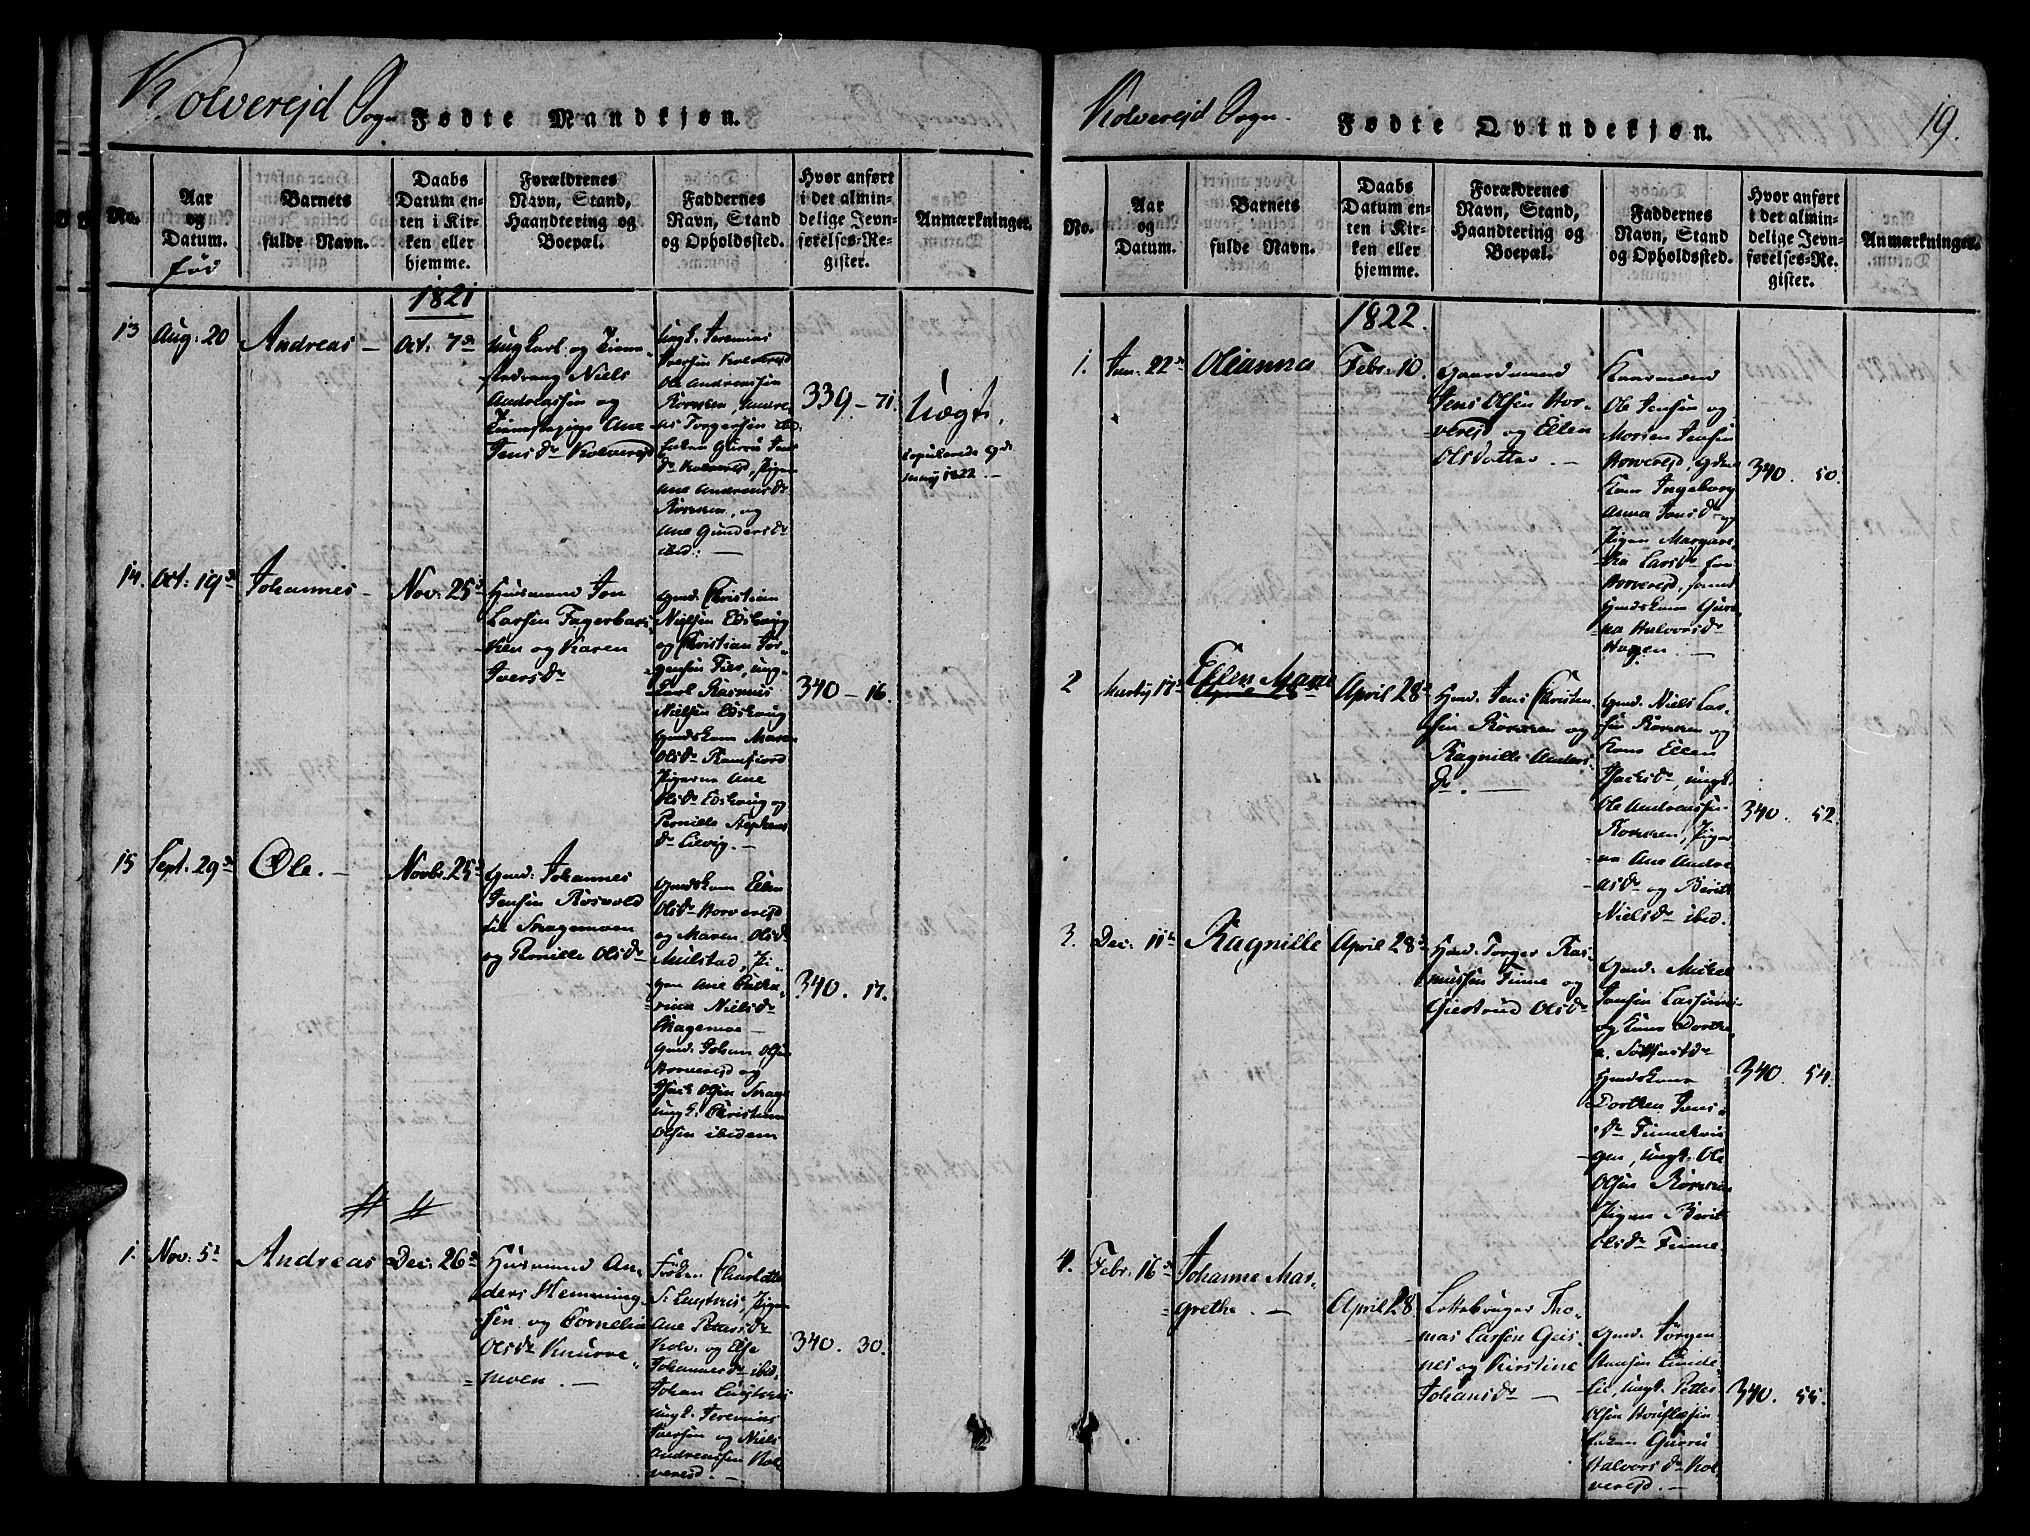 Kolverejd Sogn
Fødte Mandkjøn.
No.
Aar og Datum.
født
Barnets fulde Navn.
Daabs Datum enten i Kirken eller hjemme.
Forældrenes Navn, Stand, Haandtering og Boepæl.
Faddernes Navn, Stand og Opholdssted.
Hvor anført i det almindelige Jevnførelses-Register.
Anmærkninger.
1821
13
Aug: 20
Andreas –
Oct. 7de
Ungkarl og
Niels
Andreassen og
Ane
Jens Dr Kolverejd
Ungk. Jeremias
Iversen Kolverejd
Ole Andreassen
Rørmen, Andre-
as Torgersen ibd.
Enken Gurru Jens
Dr Kolverejd, Pigen
Ane Andreas Dr
og
Ane Gunders Dr
ibid: –
339 – 71.
Uægte,
copulerede 9de
may 1822. –
14.
Oct: 19de
Johannes –
Nov. 25de
Husmand Jon
Larsen Fagerbak-
ken og Karen
Ivers Dr
Gmd. Christian
Nielsen Edshoug
og Christian Jør-
gensen Fies, ung-
karl Rasmus
Nielsen Edshoug
Gmdskone Maren
Ols Dr Ramfiord
Pigerne Ane
Ols Dr Edshoug og
Pernille Stephens
Dr Lilvig. –
340 – 16.
15
Sept. 29de
Ole. –
Novb. 25de
Gmd: Johannes
Jensen Rosvold
og Pernille Ols Dr
Gmdskone Ellen
Ols Dr Horverejd
og Maren Ols Dr
Mulstad, Pi-
gen Ane Catha-
rina Niels Dr
Gmd. Johan Olsen
Horverejd og
Isach Olsen
Ungk. Christian
Olsen ibidem
340. 17.
1.
Nov: 5te
Andreas
Dec: 26de
Husmand An-
ders Hemming-
sen og Cornelia
Ols Dr Knurve-
moen. –
Frøken Charlotte
Pigen
Ane Peters Dr
Kolv. og Else
Johannes Dr ibd.
Johan
Ungk. Jeremias
Iversen og Niels
Andreassen Kol-
verejd. –
340. 30.
Kolverejd Sogn.
Fødte Qvindekjøn.
19.
No.
Aar og Datum.
Barnets fulde Navn.
Daabs Datum enten i Kirken eller hjemme.
Forældrenes Navn, Stand, Haandtering og Boepæl.
Faddernes Navn, Stand og Opholdssted.
Hvor anført i det almindelige Jevnførelses-Register.
Anmærkninger.
1822.
1.
Jan. 22de
Oleanna
Febr: 10.
Gaardmand
Jens Olsen Hor-
verejd og Ellen
Olsdatter. –
Gaarmænd
Ole Jensen og
Morten Jensen
Horverejd,
Kone Ingeborg
Anna Jons Dr og
Pigen Margare-
tha Lars Dr fra
Horverejd, samt
Gmdskone Guru-
na Halvors Dr
Hagen. –
340 50.
2
17de
Ellen Mane
April 28de
Hmd. Jens Christen-
sen Rørmen og
Ragnille Anders-
Dr. –
Gmd. Niels Lar-
sen Rørmen og
Kone Ellen
Isachs Dr, ungk.
Ole Andreassen
Rørmen, Piger-
na Ane Andre
as Dr og Berit
Niels Dr ibid.
340 52.
3.
Dec: 11te
Ragnille
April 28de
Hmd. Torger Ras-
mussen Finne og
Giertrud Ols Dr
Gmd. Michel
Jonsen
og Kone Dorthe-
a
Gmdskone
Dorthea Jons-
Dr Finnekrin-
gen, ungk. Ole
Olsen Rørmen
Pigen Berit
Ols Dr Finne.
340. 54.
4.
Febr. 16de
Johanne Mar-
grethe. –
April 28
Tho-
mas Larsen Geis-
nes og Kirstine
Johans Dr –
Gmd. Jørgen
Hansen Linde-
lie, ungk. Petter
Olsen
Enken Gurru
Halvors Dr Kol-
verejd. –
340. 55.